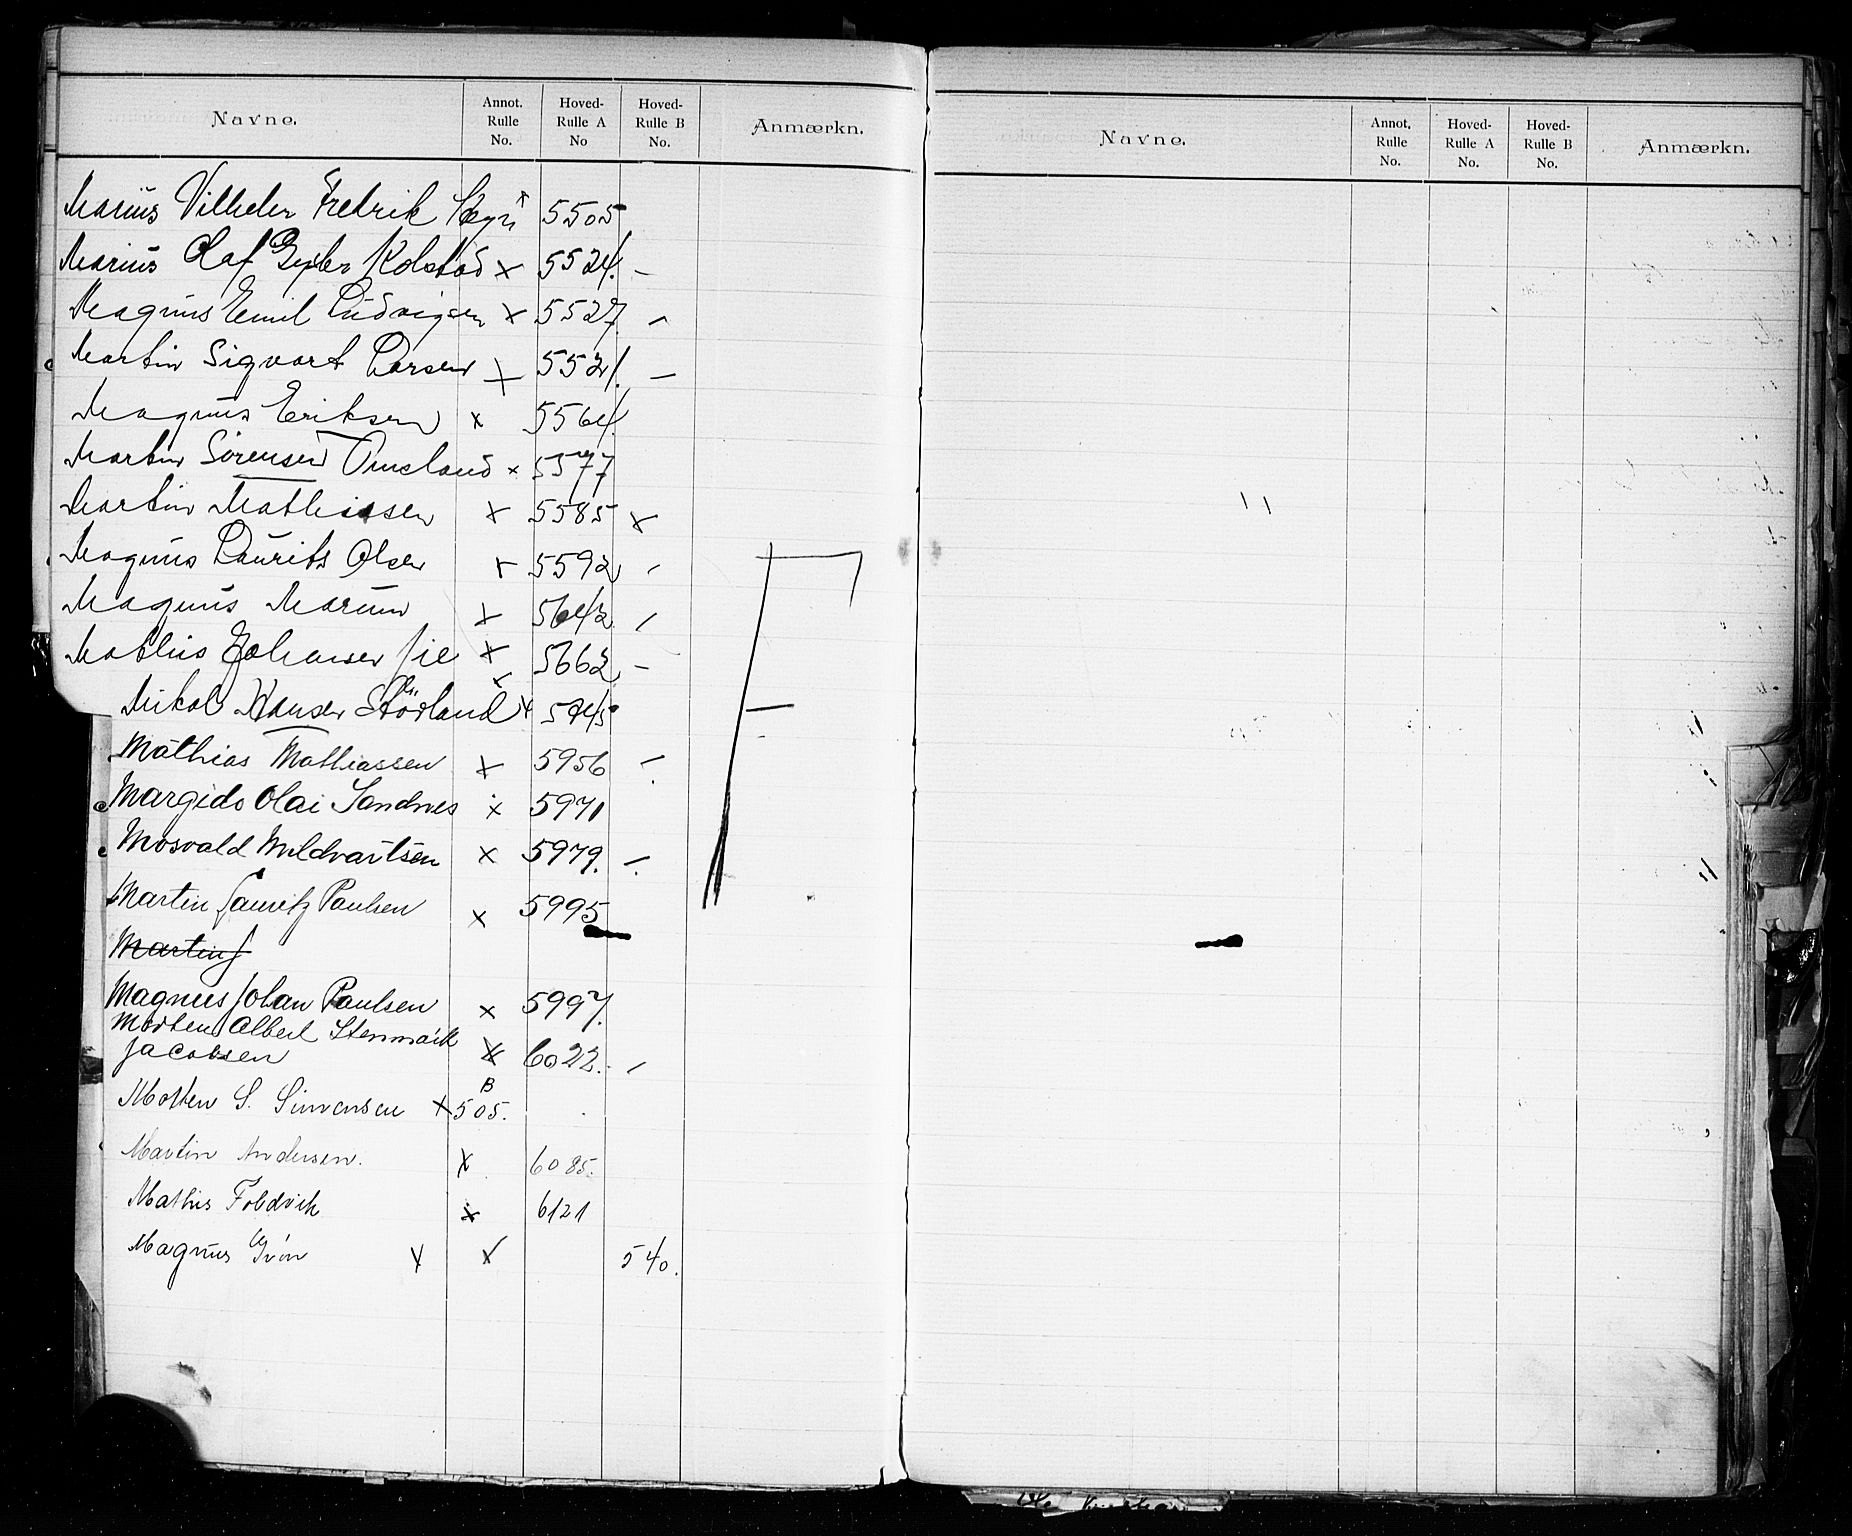 Navne. Annot. Rulle No. Hoved-Rulle A No Hoved-Rulle B No. Anmærkn.
Marius Vilhelm Fredrik x 5505
Marius Olaf Kolstad x 5524. –
Magnus Emil Ludvigsen x 5527. –
Martin Sigvart Larsen x 5521. –
Magnus Eriksen x 5564.
Martin Sörensen Omsland x 5577
Martin Mathiassen x 5585 x
Magnus Laurits Olsen x 5592 –
Magnus Marum x 5642 –
Mathis Johansen Lie x 5662 –
Mikal Hansen x 5745
Mathias Mathiassen x 5956 –
Margido Olai Sandnes x 5971
Mosvald Mildvartsen x 5979. –
Martin Lauritz Paulsen x 5995
Martin J
Magnus Johan Paulsen x 5997.
Morten Albert Stenmark
Jacobsen x 6022. –
B
Morten S. Simensen x 505.
Martin Andersen. x 6085.
Mathis Foldvik x 6121
Magnus x x 540.
Navne. Annot. Rulle No. Hoved-Rulle A No. Hoved-Rulle B No. Anmærkn.